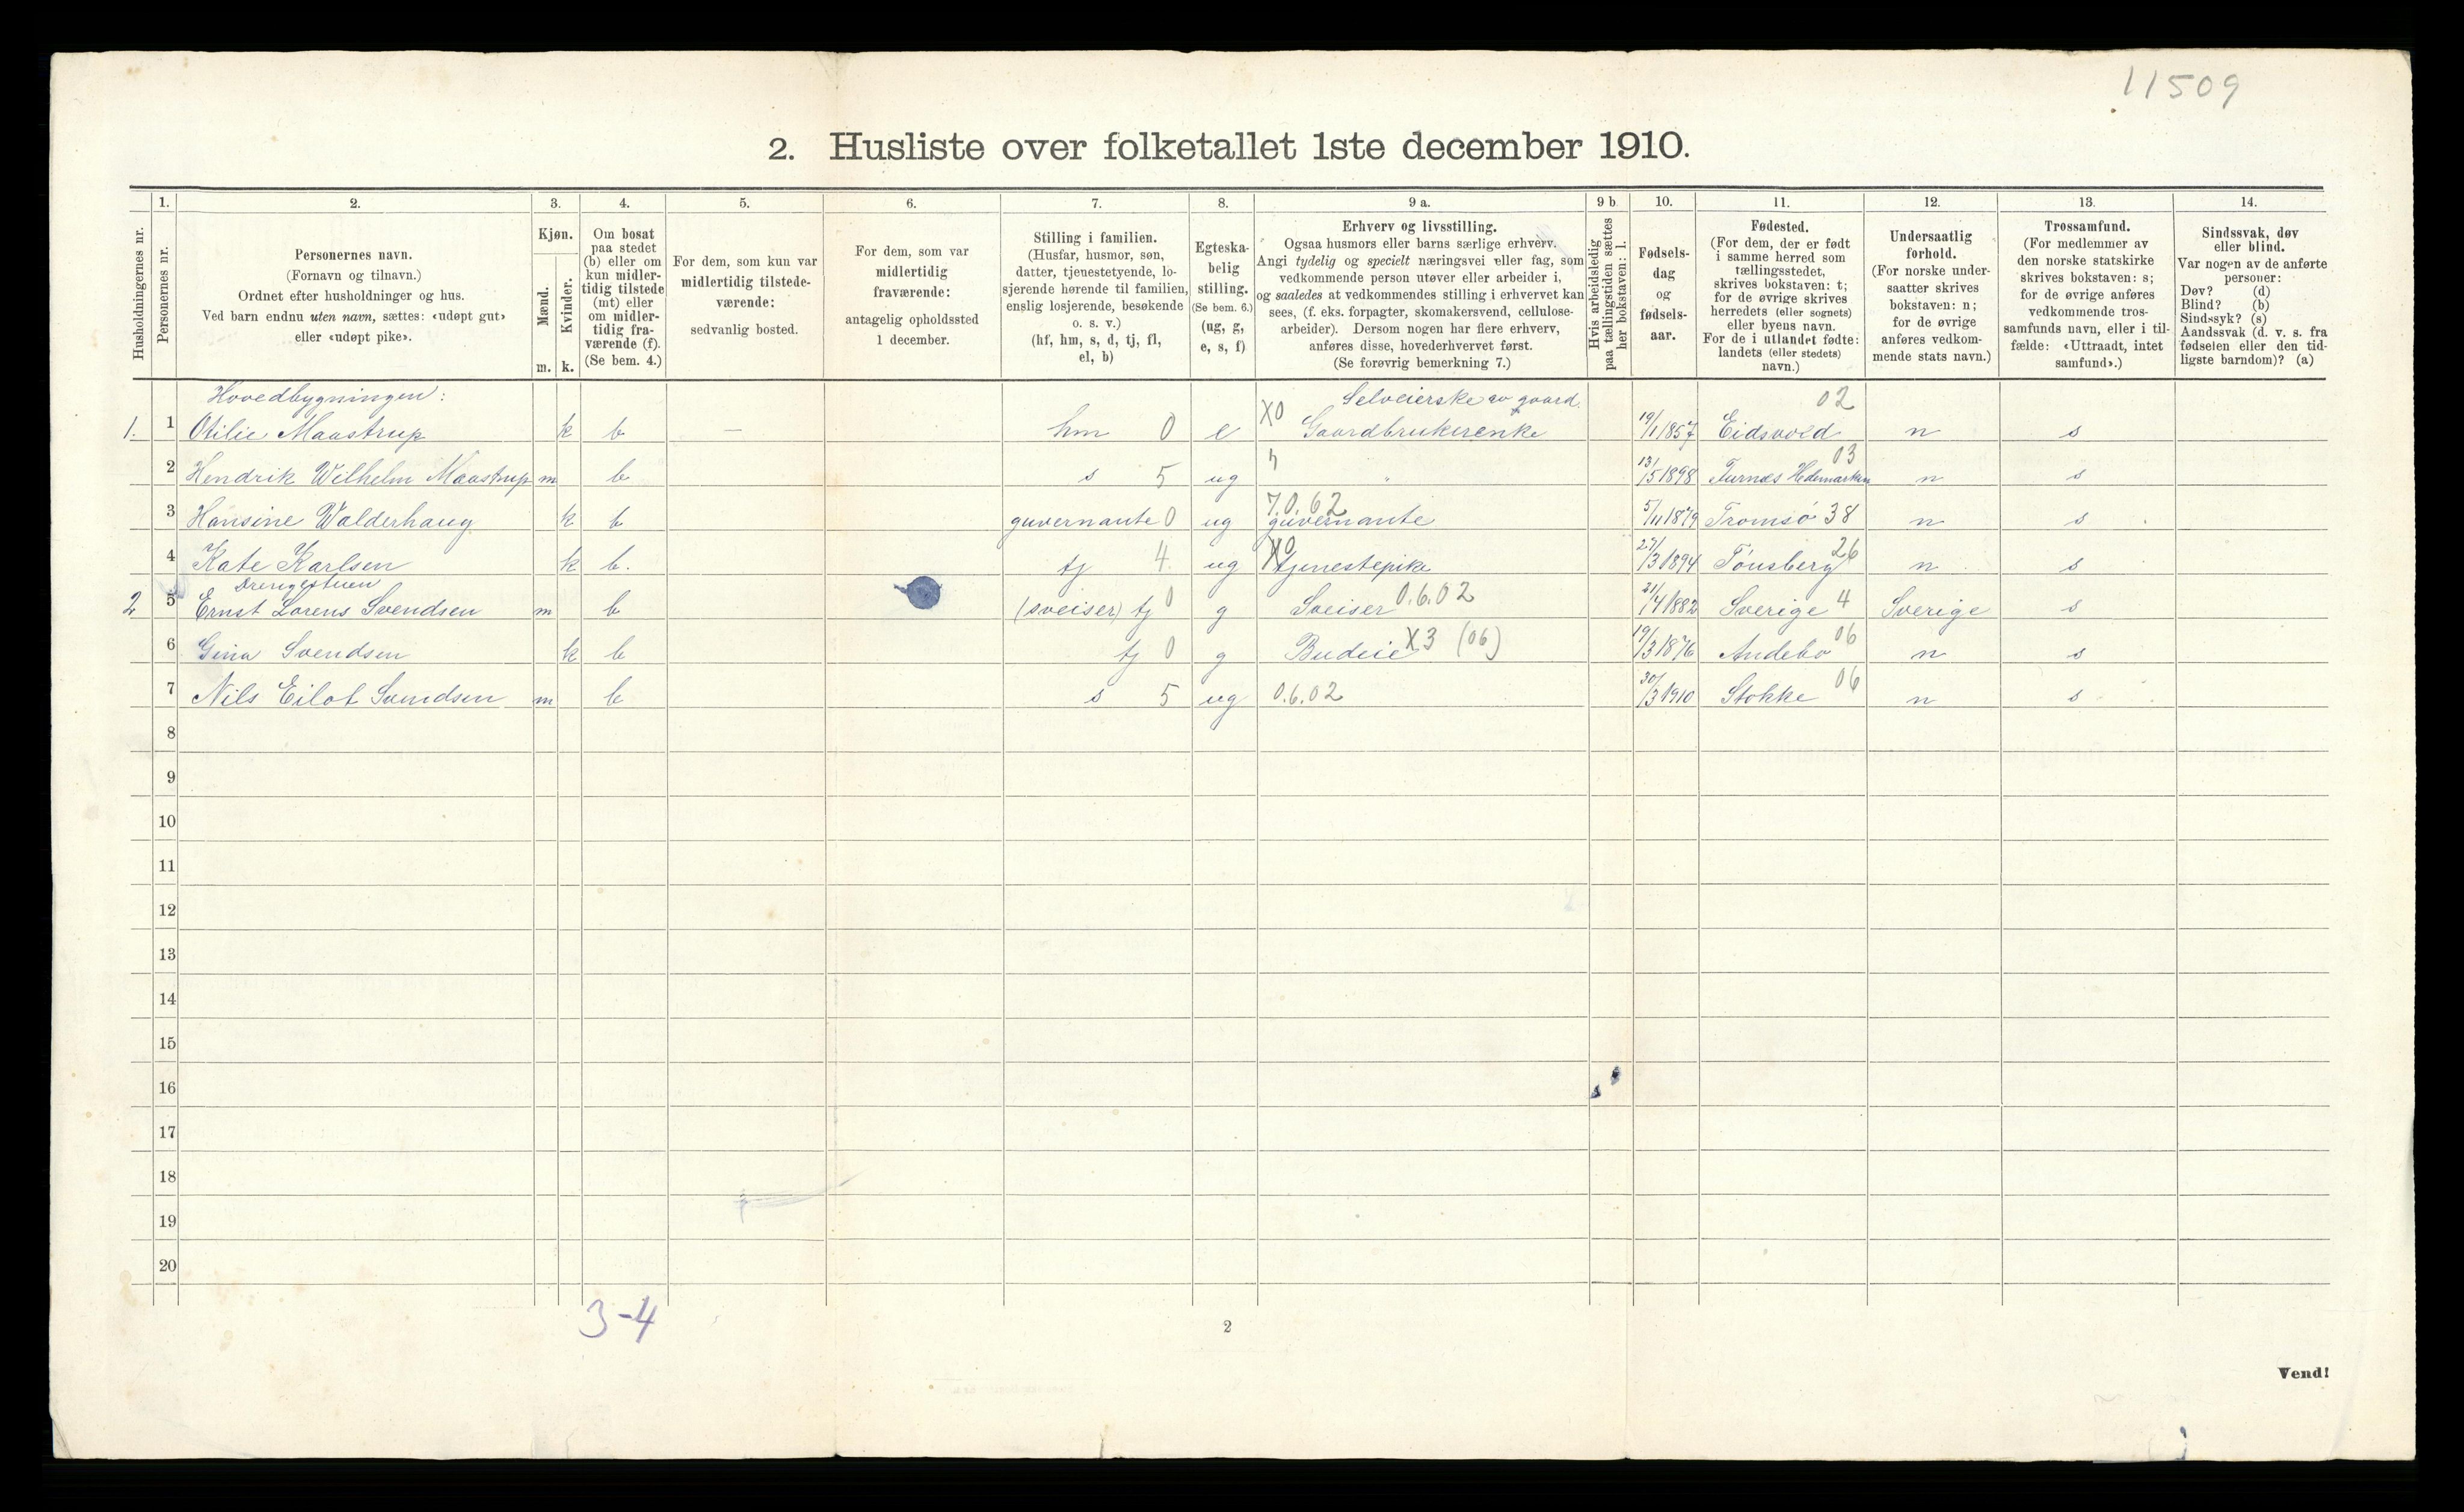 11509
2. Husliste over folketallet 1ste december 1910.
Husholdningernes nr.
1.
Personernes nr.
2.
Personernes navn.
(Fornavn og tilnavn.)
Ordnet efter husholdninger og hus.
Ved barn endnu uten navn, sættes: «udøpt gut»
eller «udøpt pike».
3.
Kjøn.
Mænd.
Kvinder.
m. k.
4.
Om bosat
paa stedet
(b) eller om
kun midler-
tidig tilstede
(mt) eller
om midler-
tidig fra-
værende (f).
(Se bem. 4.)
5.
For dem, som kun var
midlertidig tilstede-
værende:
sedvanlig bosted.
6.
For dem, som var
midlertidig
fraværende:
antagelig opholdssted
1 december.
7.
Stilling i familien.
(Husfar, husmor, søn,
datter, tjenestetyende, lo-
sjerende hørende til familien,
enslig losjerende, besøkende
o. s. v.)
(hf, hm, s, d, tj, fl,
el, b)
8.
Egteska-
belig
stilling.
(Se bem. 6.)
(ug, g,
e, s, f)
9 a.
Erhverv og livsstilling.
Ogsaa husmors eller barns særlige erhverv.
Angi tydelig og specielt næringsvei eller fag, som
vedkommende person utøver eller arbeider i,
og saaledes at vedkommendes stilling i erhvervet kan
sees, (f. eks. forpagter, skomakersvend, cellulose-
arbeider). Dersom nogen har flere erhverv,
anføres disse, hovederhvervet først.
(Se forøvrig bemerkning 7.)
9 b.
Hvis arbeidsledig
paa tællingstiden sættes
her bokstaven: l.
10.
Fødsels-
dag
og
fødsels-
aar.
11.
Fødested.
(For dem, der er født
i samme herred som
tællingsstedet,
skrives bokstaven: t;
for de øvrige skrives
herredets (eller sognets)
eller byens navn.
For de i utlandet fødte:
landets (eller stedets)
navn.)
12.
Undersaatlig
forhold.
(For norske under-
saatter skrives
bokstaven: n;
for de øvrige
anføres vedkom-
mende stats navn.)
13.
Trossamfund.
(For medlemmer av
den norske statskirke
skrives bokstaven: s;
for de øvrige anføres
vedkommende tros-
samfunds navn, eller i til-
fælde: «Uttraadt, intet
samfund».)
14.
Sindssvak, døv
eller blind.
Var nogen av de anførte
personer:
Døv? (d)
Blind? (b)
Sindssyk? (s)
Aandssvak (d. v. s. fra
fødselen eller den tid-
ligste barndom)? (a)
Hovedbygningen: Selveierske av gaard. 02
1. 1 Otilie Maastrup k b — hm 0 e X0 Gaardbrukerenke 19/1 1857 Eidsvold n s
2 Hendrik Wilhelm Maastrup m b s 5 ug " 13/5 1898 Furnes Hedemarken 03 n s
3 Hansine Walderhaug k b guvernante 0 ug 7.0.62 guvernante 5/11 1879 Tromsø 38 n s
4 Kate Karlsen k b. tj 4 ug X0 tjenestepike 27/3 1894 Tønsberg 26 n s
Drengestuen
2 5 Ernst Lorens Svendsen m b (sveiser) tj 0 g Sveiser 0.6.02 21/4 1882 Sverige 4 Sverige s
6 Gina Svendsen k b tj 0 g Budeie X3 (06) 19/3 1876 Andebo 06 n s
7 Nils Eilof Svendsen m b s 5 ug 0.6.02 30/3 1910 Stokke 06 n s
8
9
10
11
12
13
14
15
16
17
18
19
20
3-4
2
Vend!